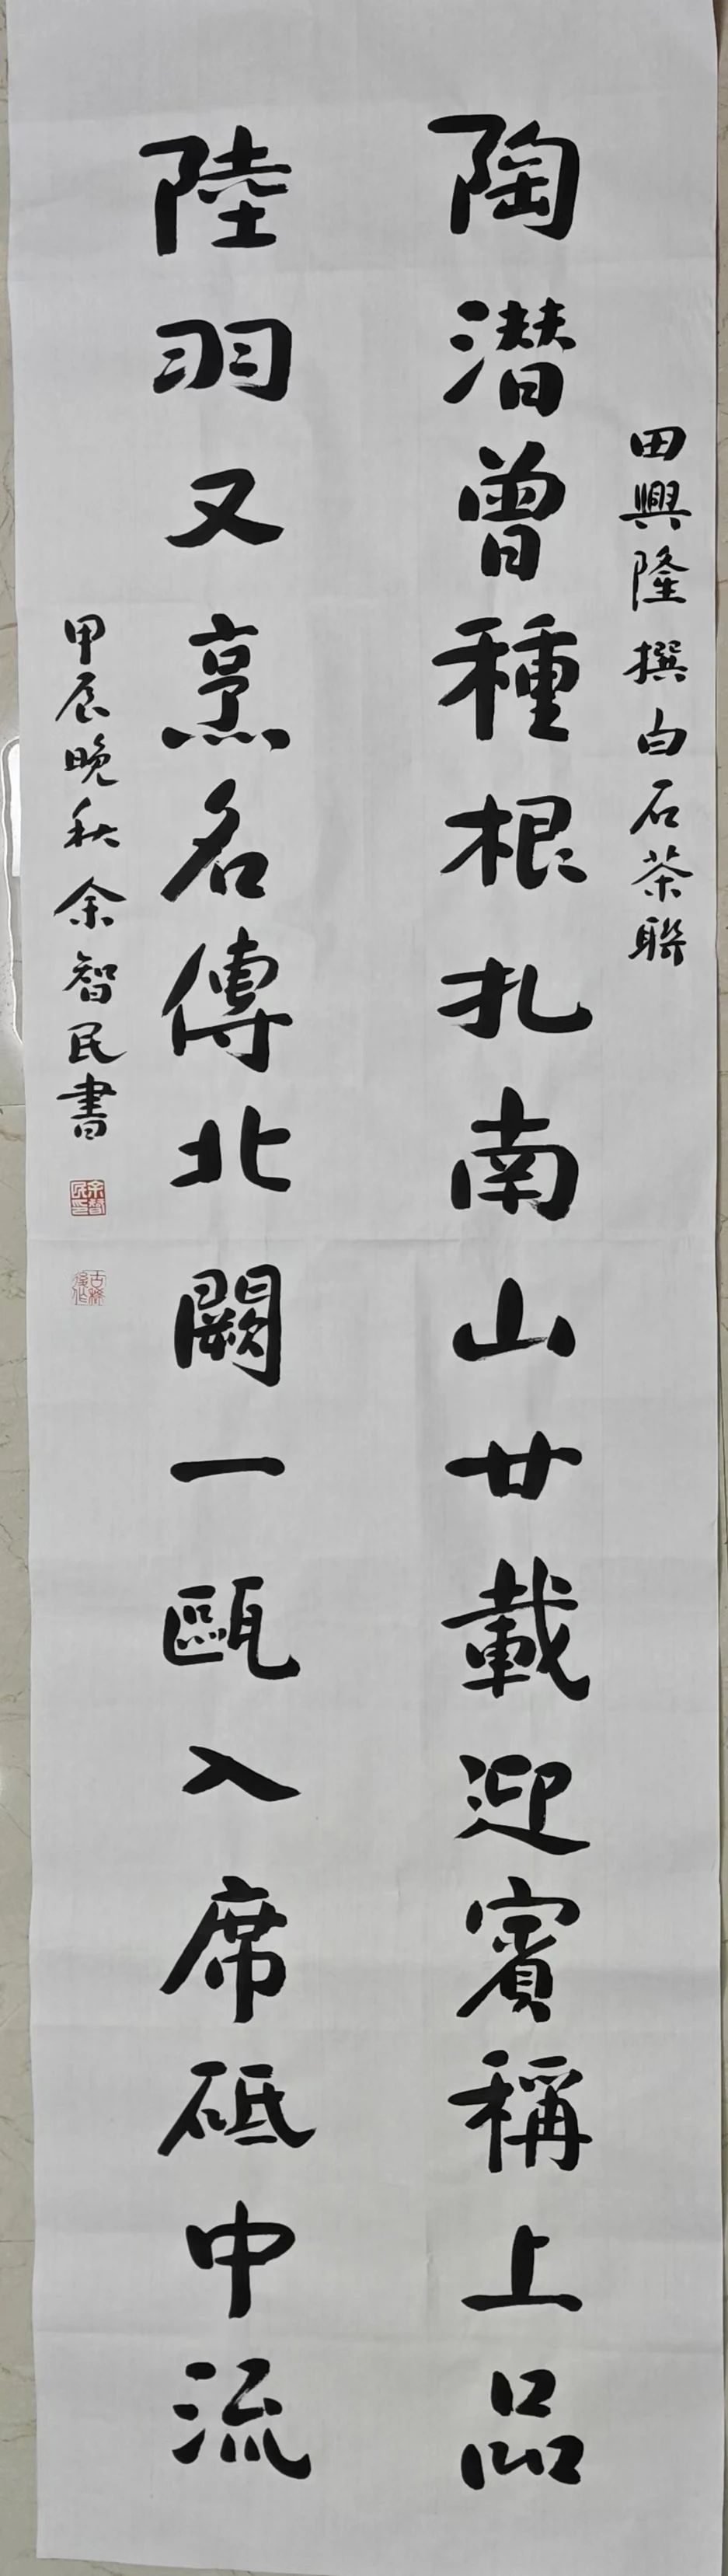 田興隆撰白石茶聯
陶潛曾種根扎南山廿載迎賓稱上品
陸羽又烹名傳北闕一甌入席砥中流
甲辰晚秋余智民書